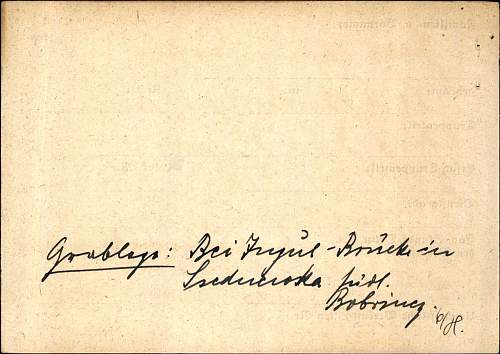 Grablage: Bei Ingul-Brücke in
südl.
Bobrinez.